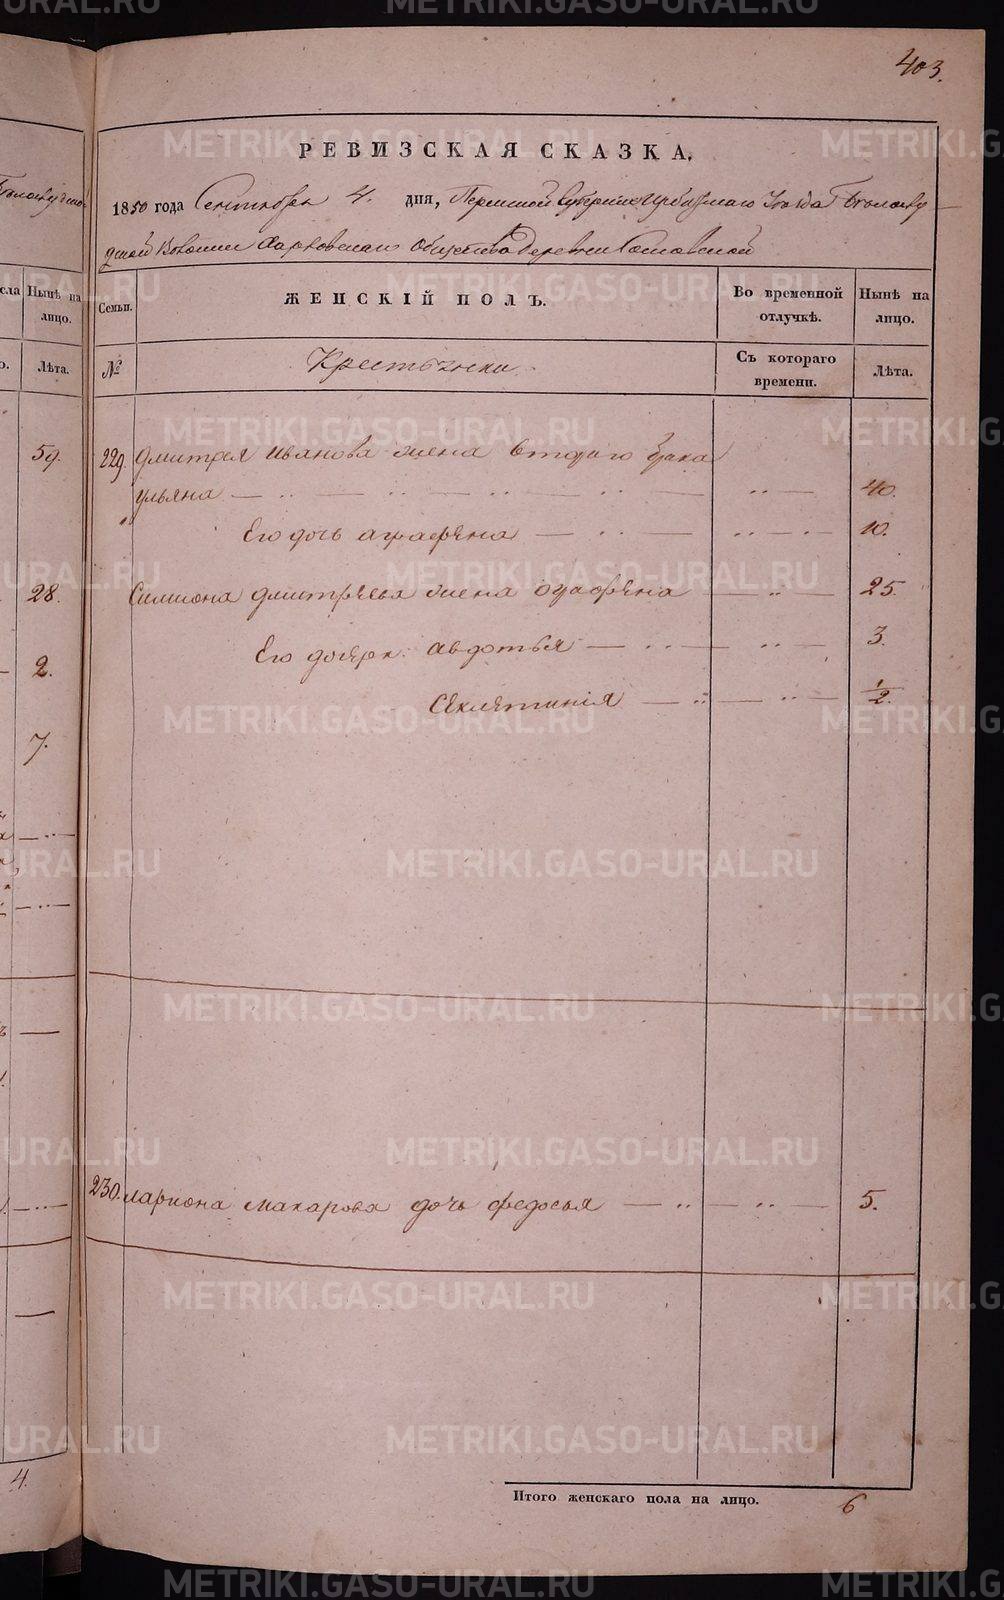 403.
РЕВИЗСКАЯ СКАЗКА.
1850 года Сентября 4. дня, Пермской Губернии Ирбитскаго Уѣзда Бѣлослу-
дской Волости Харловскаго Общества Деревни
Семьи.
ЖЕНСКІЙ ПОЛЪ.
Во временной отлучкѣ.
Нынѣ на лицо.
№
Крестьянки
Съ котораго времени.
Лѣта.
229. Дмитрея Иванова жена втораго брака
Ульяна 40.
Его дочь аграфѣна 10.
Симиона дмитрѣева жена аграфѣна 25.
Его дочери: авдотья 3.
Секлетинія 1/2.
230. лариона макарова дочь федосья 5.
Итого женскаго пола на лицо. 6
Нынѣ на лицо.
Лѣта.
59.
28.
2.
7.
4.
METRIKI.GASO-URAL.RU